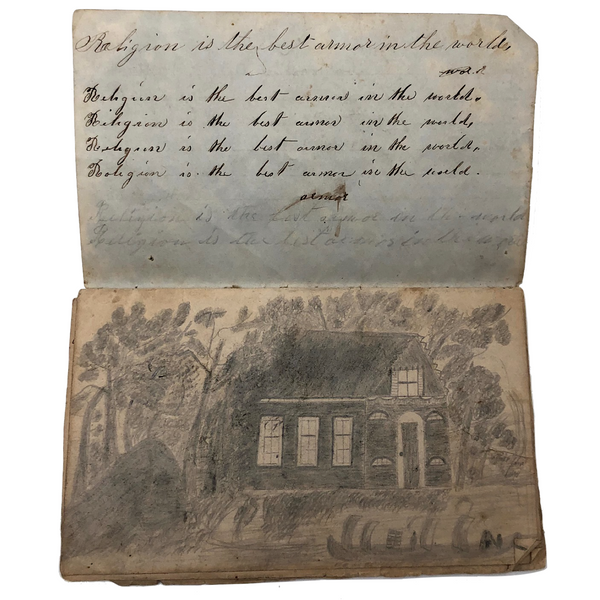 Religion is the best armor in the world,
world
Religion is the best armor in the world.
Religion is the best armor in the world,
Religion is the best armor in the world.
Religion is the best armor in the world.
armor
Religion is the best armor in the world
Religion is the best armor in the